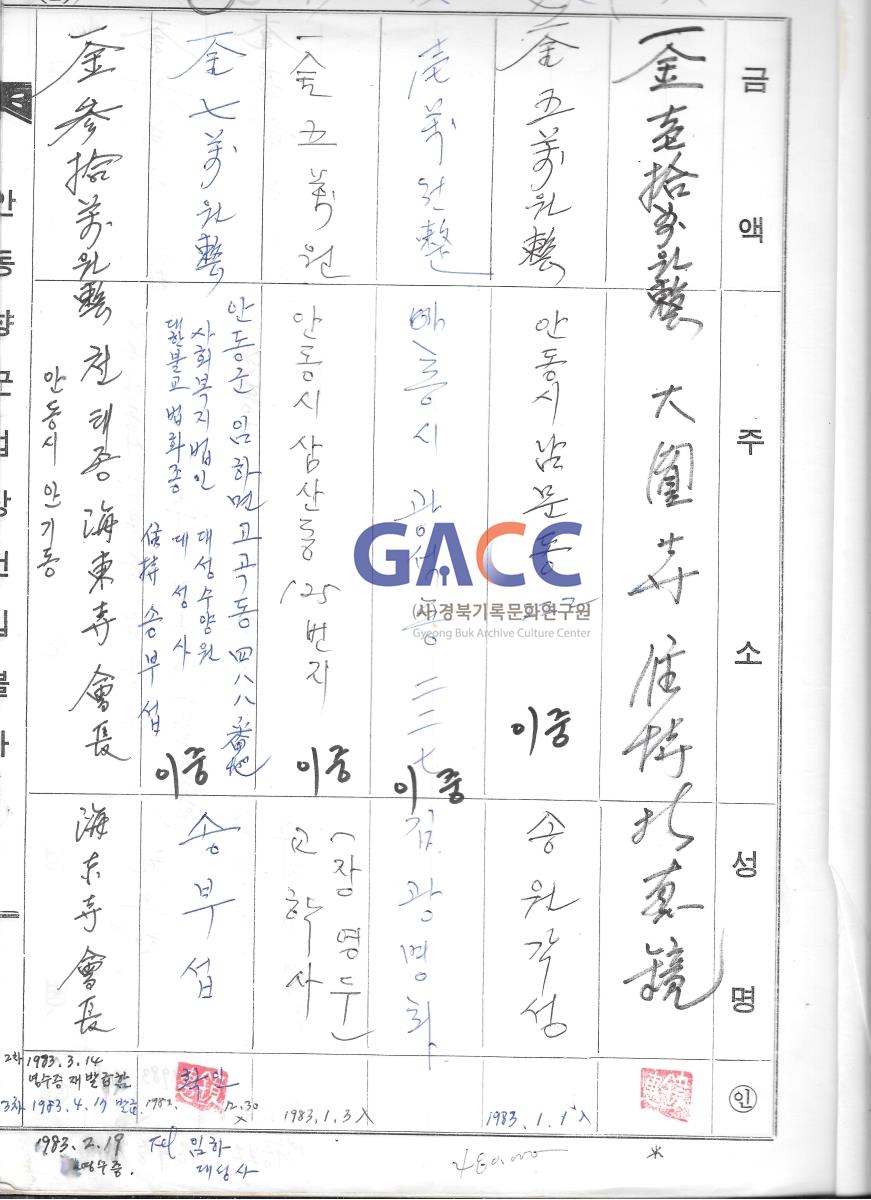 금액
주소
성명
印
一金壱拾万원整
大圓寺 住持
朴惠鏡
一金五萬원整
안동시 남문동
이중
송원각성
1983.1.1 入
壱萬원整
二二七
이중
김광명화
一金五萬원
안동시 삼산동 125번지
이중
(장영두
고학사
1983.1.3 入
一金七萬원整
안동군 임하면 고곡동 四八八番地
사회복지법인 대성수양원
대한불교 법화종 대성사
住持 송부섭
이중
송부섭
확인
12.30
一金参拾萬원整
천태종 海東寺 會長
안동시 안기동
海东寺 會長
2차 1983.3.14
영수증 재발급함
3차 1983.4.17 발급
1983.2.19
영수증.
임하
대성사
GACC
(사)경북기록문화연구원
Gyeong Buk Archive Culture Center